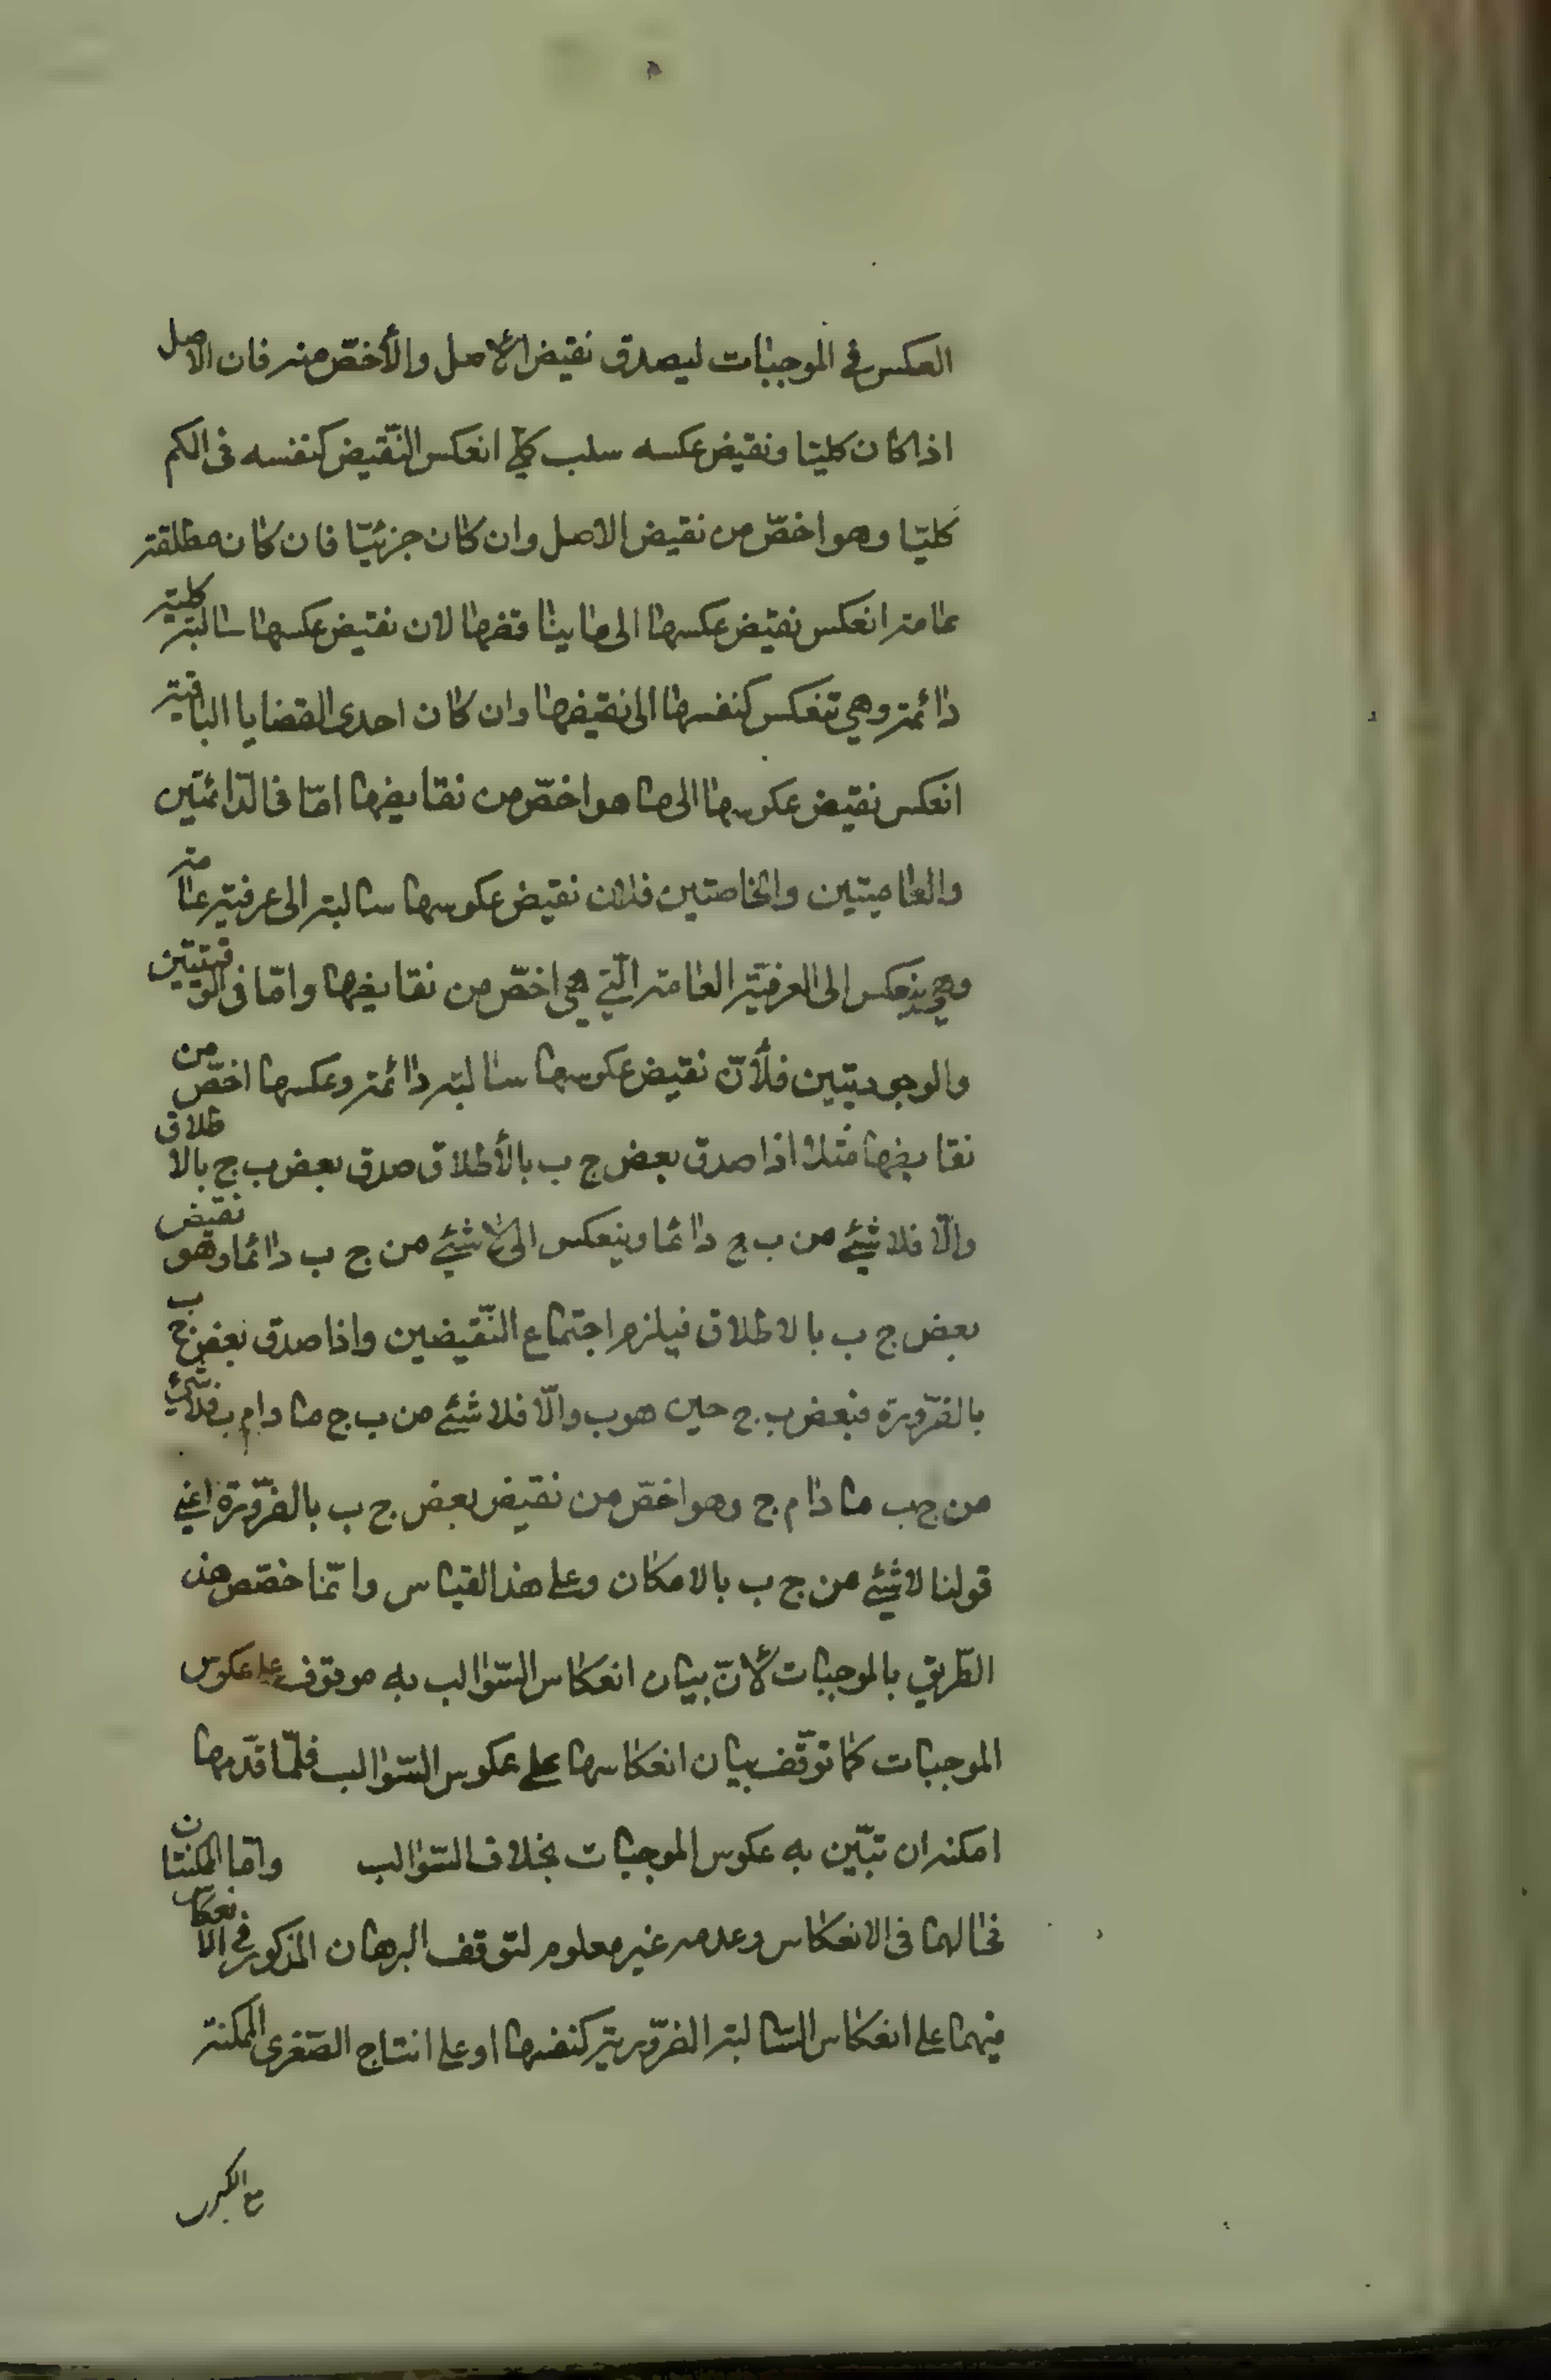 العكس فى الموجبات ليصدق نقيض الأصل والأخصّ منه فان الاصل
اذا كان كليّا ونقيض عكسه سلب كلّى انعكس النّقيض كنفسه فى الكم
كليّا وهو اخصّ من نقيض الاصل وان كان جزئيّا فان كان مطلقة
عامة انعكس نقيض عكسها الى ما يناقضها لان نقيض عكسها سالبة كلية
دائمة وهي تنعكس كنفسها الى نقيضها وان كان احدى القضايا الباقية
انعكس نقيض عكوسها الى ما هو اخصّ من نقايضها امّا فى الدّائمتين
والعامتين والخاصتين فلان نقيض عكوسها سالبة الى عرفية عامة
وهي ينعكس الى العرفيّة العامة الّتى هي اخصّ من نقايضها وامّا فى الوقتيتين
والوجوديتين فلأنّ نقيض عكوسها سالبة دائمة وعكسها اخصّ من
نقايضها مثلا اذا صدق بعض ج ب بالأطلاق صدق بعض ب ج بالاطلاق
والّا فلا شيئ من ب ج دائما وينعكس الى لا شيئ من ج ب دائما وهو نقيض
بعض ج ب بالاطلاق فيلزم اجتماع النّقيضين واذا صدق بعض ج ب
بالضّرورة فبعض ب ج حين هو ب والّا فلا شيئ من ب ج ما دام ب فلا شيئ
من ج ب ما دام ج وهو اخصّ من نقيض بعض ج ب بالضّرورة اعنى
قولنا لا شيئ من ج ب بالامكان وعلى هذا القياس وانّما خصّص هذا
الطّريق بالموجبات لأنّ بيان انعكاس السّوالب به موقوف على عكوس
الموجبات كما توقّف بيان انعكاسها على عكوس السّوالب فلمّا قدّمها
امكنه ان تبّين به عكوس الموجبات بخلاف السّوالب وامّا الممكنتان
فحالهما فى الانعكاس وعدمه غير معلوم لتوقف البرهان المذكور فى الانعكاس
فيهما على انعكاس السّالبة الضّرورية كنفسها او على انتاج الصّغرى الممكنة
مع الكبرى